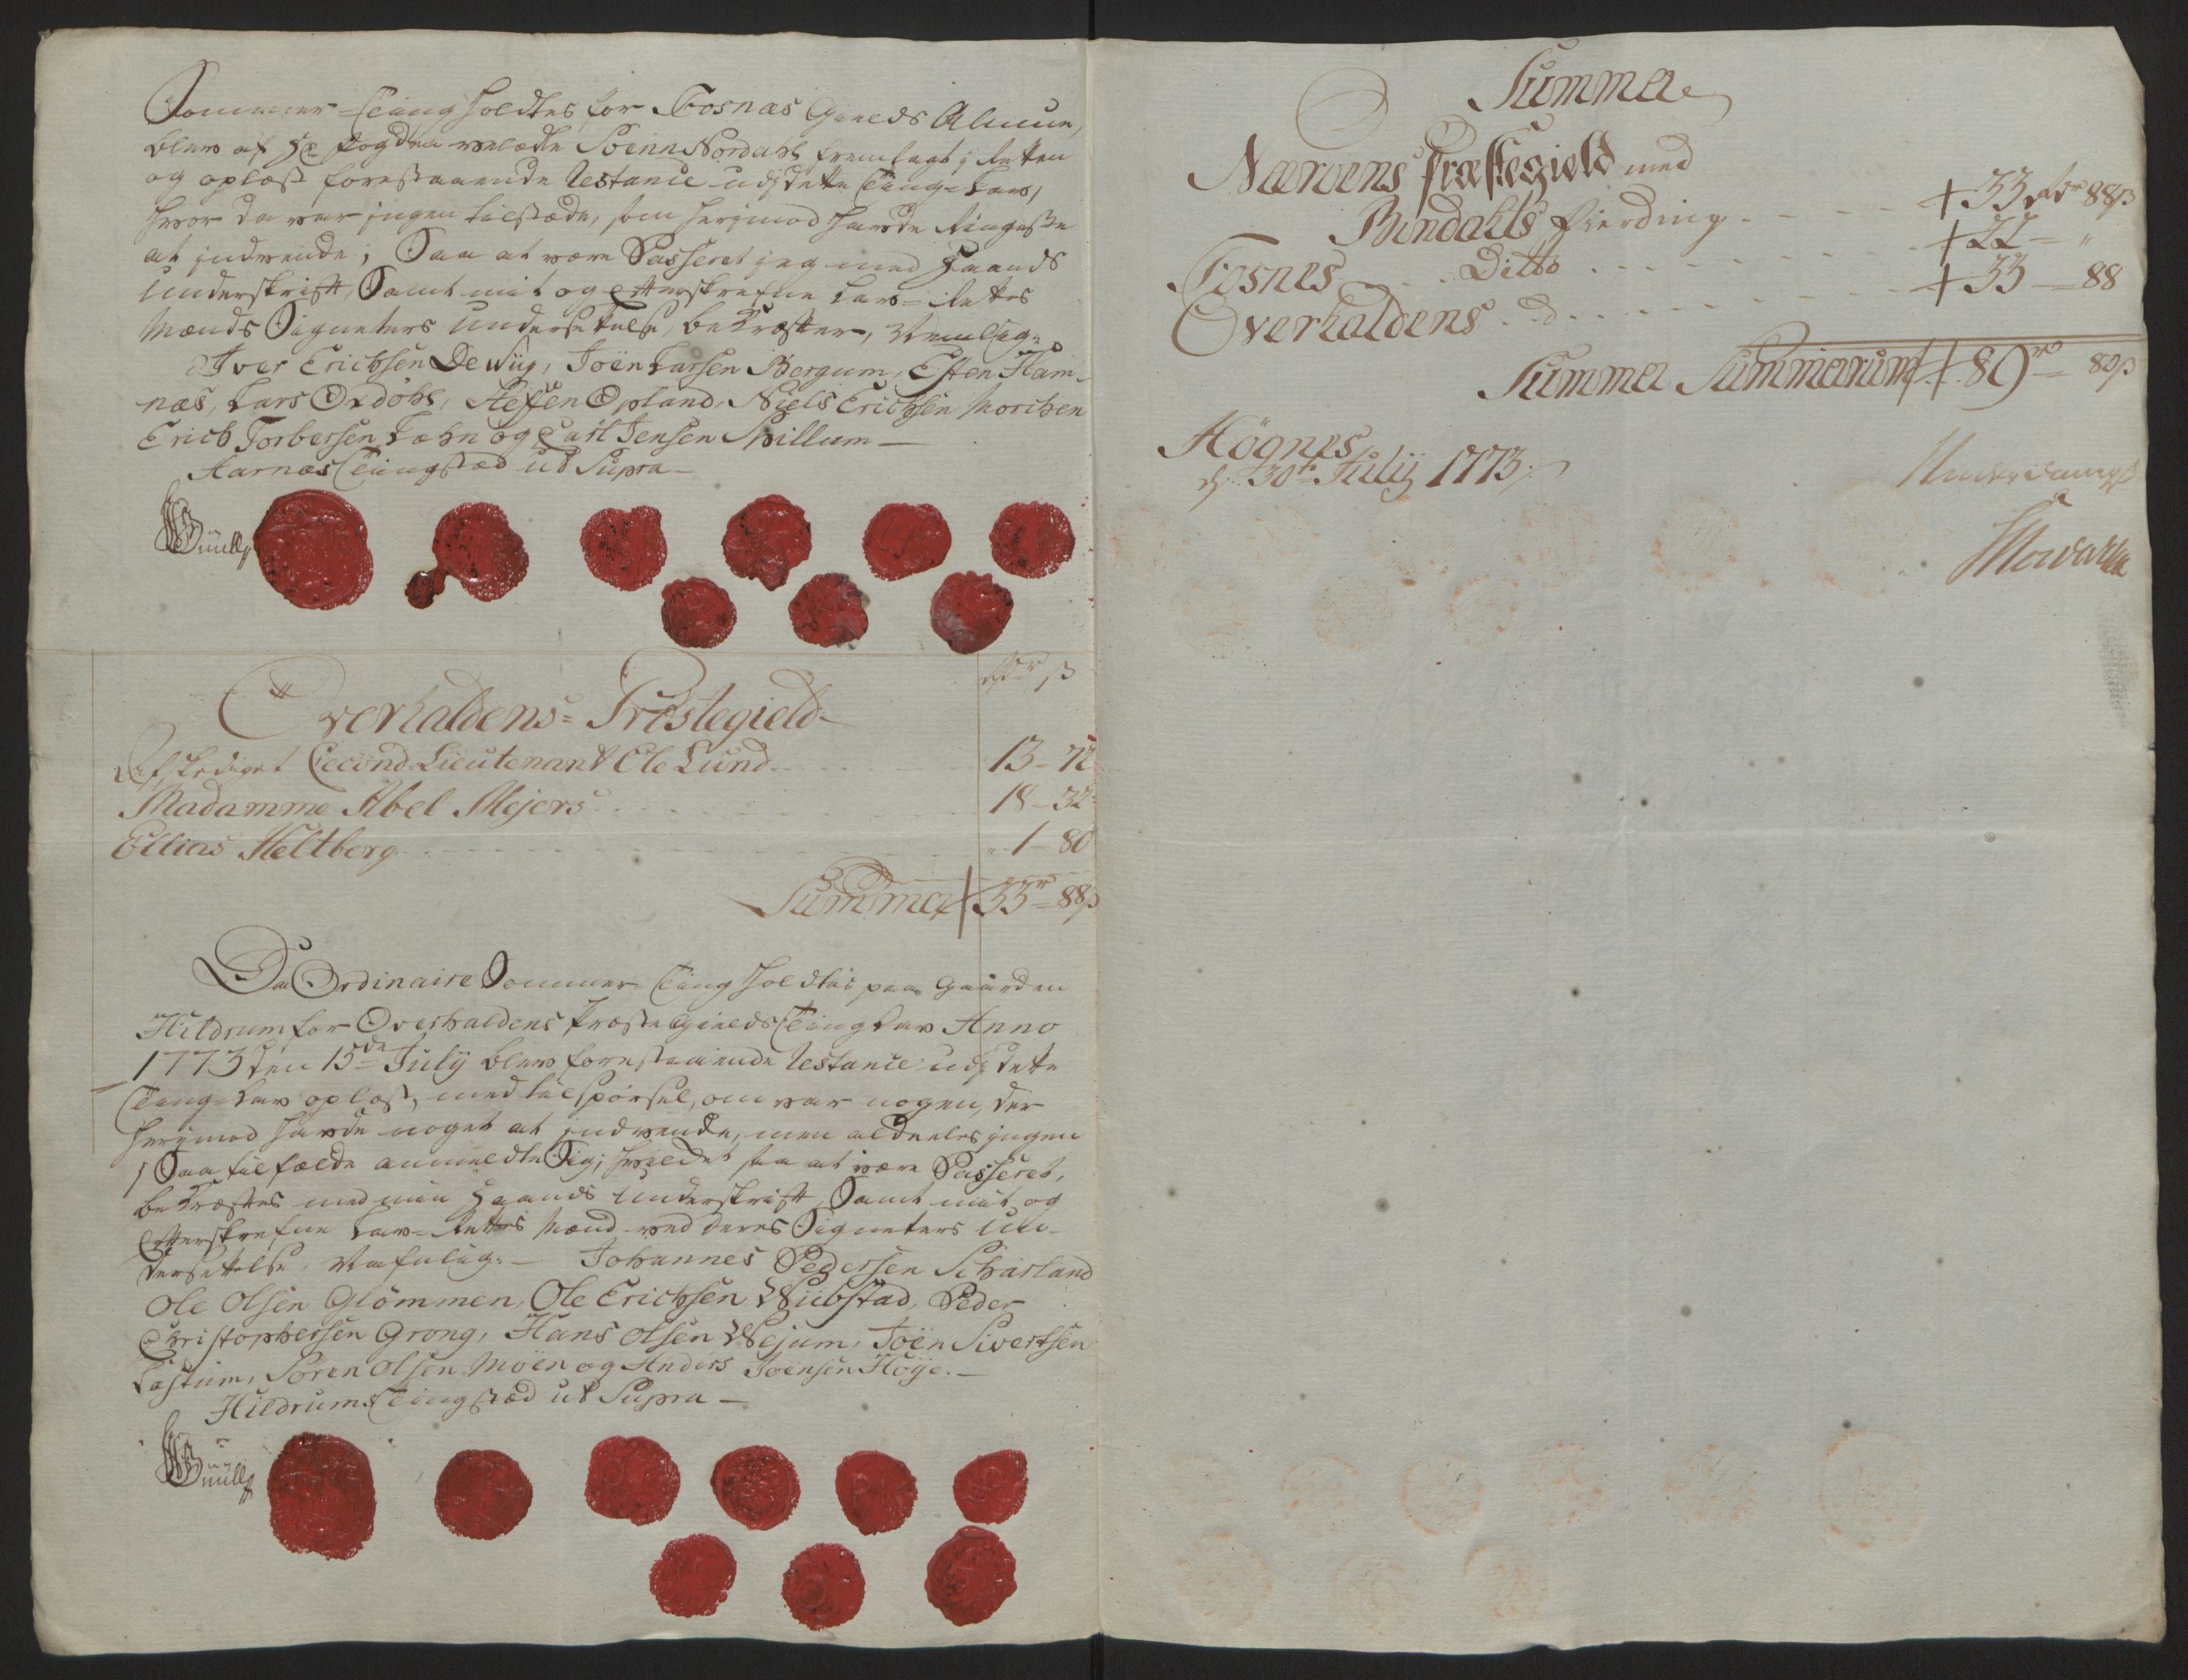 Sommer-Ting holdtes for Fosnæs Gields Almue,
blev af Hr Fogden velædle Sr Nordahl fremlagt i Retten
og oplæst forestaaende Restance udj dette Ting-Lav,
hvor da var ingen tilstæde, som herimod hafde Ringeste
at indvende; Saa at være Passeret ieg med Haands
Underskrift, Samt mit og efterskrefne Lav-Rettes
Mænds Signeters Undersettelse, bekræfter, Nemlig:
Iver Erichsen Deviig, Joen Larsen Bergum, Esten Ham-
næs, Lars Oxdöhl, Steffen Opland, Niels Erichsen Morchen
Erich Torbersen Læhn og Carl Jensen Spillum
Aarnæs Tingstæd ut Supra
Overhaldens Præstegield
rdr ß
Afskediget Second Lieutenant Ole Lund 13 - 72
Madamme Abel Mejers 18 - 32
Ellias Heltberg 1 - 80
Summa 33 r - 88 ß
Da Ordinaire Sommer Ting holdtes paa Gaarden
Hildrum for Overhaldens Præste Gields Ting Lav Anno
1773 den 15de July blev forestaaende Restance udj dette
Ting-Lav oplæst, med tilspörsel, om var nogen, der
herimod hafde noget at indvende, men aldeeles ingen
i Saa tilfælde anmeldte Sig; hvilcket saa at være Passeret,
bekræftes med min Haands Underskrift, Samt mit og
efterskrefne Lav-Rettes Mænd ved deres Signeters Un-
dersettelse, Nafnlig: Johannes Pedersen Scharland
Ole Olsen Glömmen, Ole Erichsen Viibstad, Peder
Christophersen Grong, Hans Olsen Vejum, Joen Sivertsen
Læstum, Sören Olsen Möen og Anders Joensen Höye.
Hildrums Tingstæd ut Supra
Summa
Næröens Præstegield med
Bindahls fierding + 33 rdr 88 ß
Fosnes Ditto + 22 - "
Overhaldens d + 33 - 88
Summa Summarum + 89 r - 80 ß
Högnes
d. 30te July 1773.
Underdanigst